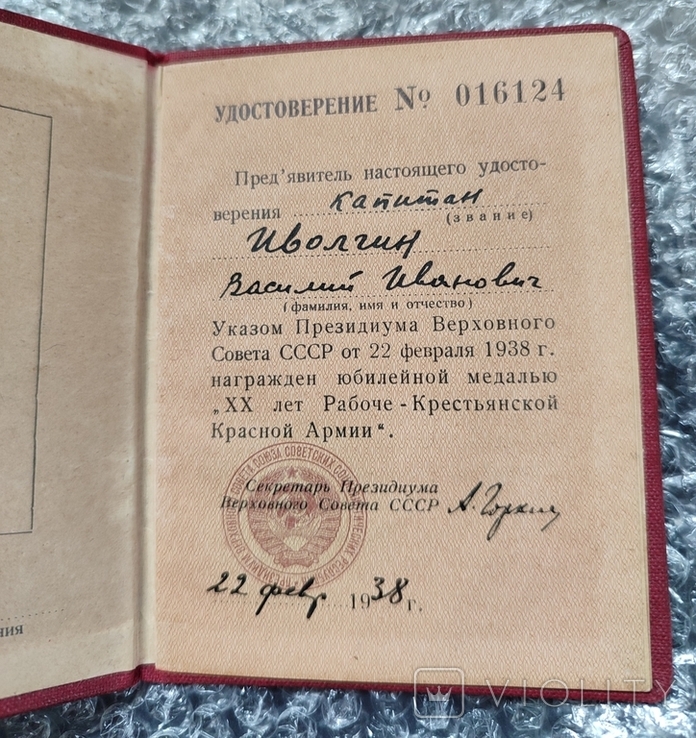 УДОСТОВЕРЕНИЕ № 016124
Пред'явитель настоящего удосто-
верения капитан
(звание)
Иволгин
Василий Иванович
(фамилия, имя и отчество)
Указом Президиума Верховного
Совета СССР от 22 февраля 1938 г.
награжден юбилейной медалью
„XX лет Рабоче-Крестьянской
Красной Армии“.
Секретарь Президиума
Верховного Совета СССР А. Горкин
22 февр 1938 г.
VIOLITY